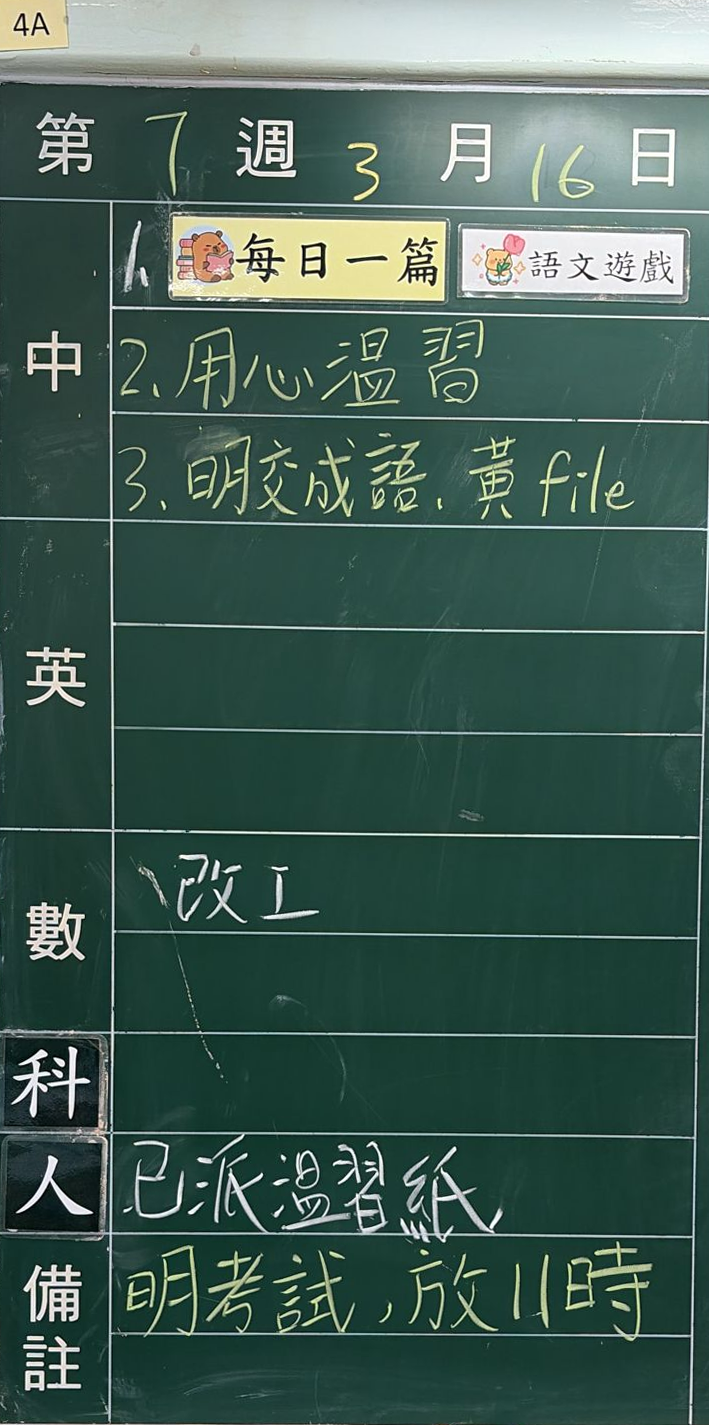 4A
第 7 週 3 月 16 日
中
1. 每日一篇 語文遊戲
2. 用心溫習
3. 明交成語. 黃 file
英
數
改工
科
人 已派溫習紙
備註 明考試,放11時